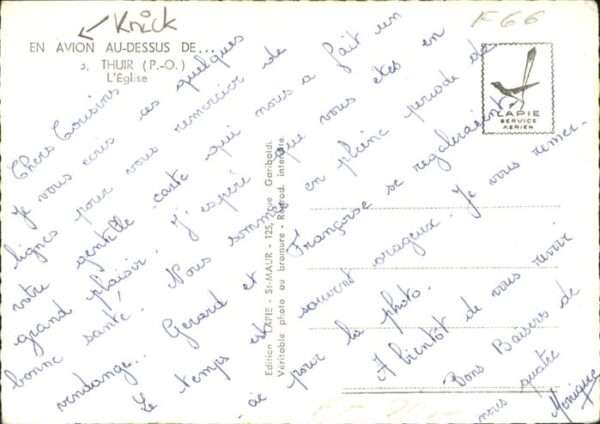 Knick
F66
EN AVION AU-DESSUS DE...
THUIR (P.-O.)
L'Église
LAPIE
SERVICE
AERIEN
Edition LAPIE - St-MAUR - 125, Rue Garibaldi.
Véritable photo au bromure - Reprod. interdite
Chers Cousins
Je vous écris ces quelques
lignes pour vous remercier de
votre gentille carte qui nous a fait un
grand plaisir. J'espère que vous êtes en
bonne santé. Nous sommes en pleine période de
vendange... Gerard et Françoise se régaleraient.
Le temps est souvent orageux. Je vous remer-
ai pour la photo.
A bientôt de vous revoir
Bons Baisers de
nous quatre
Monique